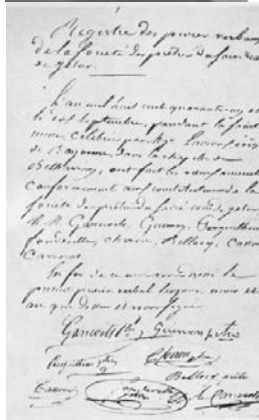 Registre des procès verbaux
de la société des prêtres du sacré cœur
de Jésus.
L'an mil huit cent quarante
le six septembre, pendant la sainte
messe, célébrée par Mgr Lacroix évêque
de Bayonne, dans la chapelle de
Betharram, ont fait les vœux annuels
conformément aux constitutions de la
société des prêtres du sacré cœur de Jésus
M.M. Garicoits, Guimon, Perguilhem
Fondeville, Chirou, Bellocq, Cassou
En foi de ce avons dressé le
présent procès verbal les jour, mois et
an que dessus et avons signé
Garicoits Ptre Guimon ptre
Perguilhem ptre Chirou ptre
Bellocq, ptre
Cassou Fondeville